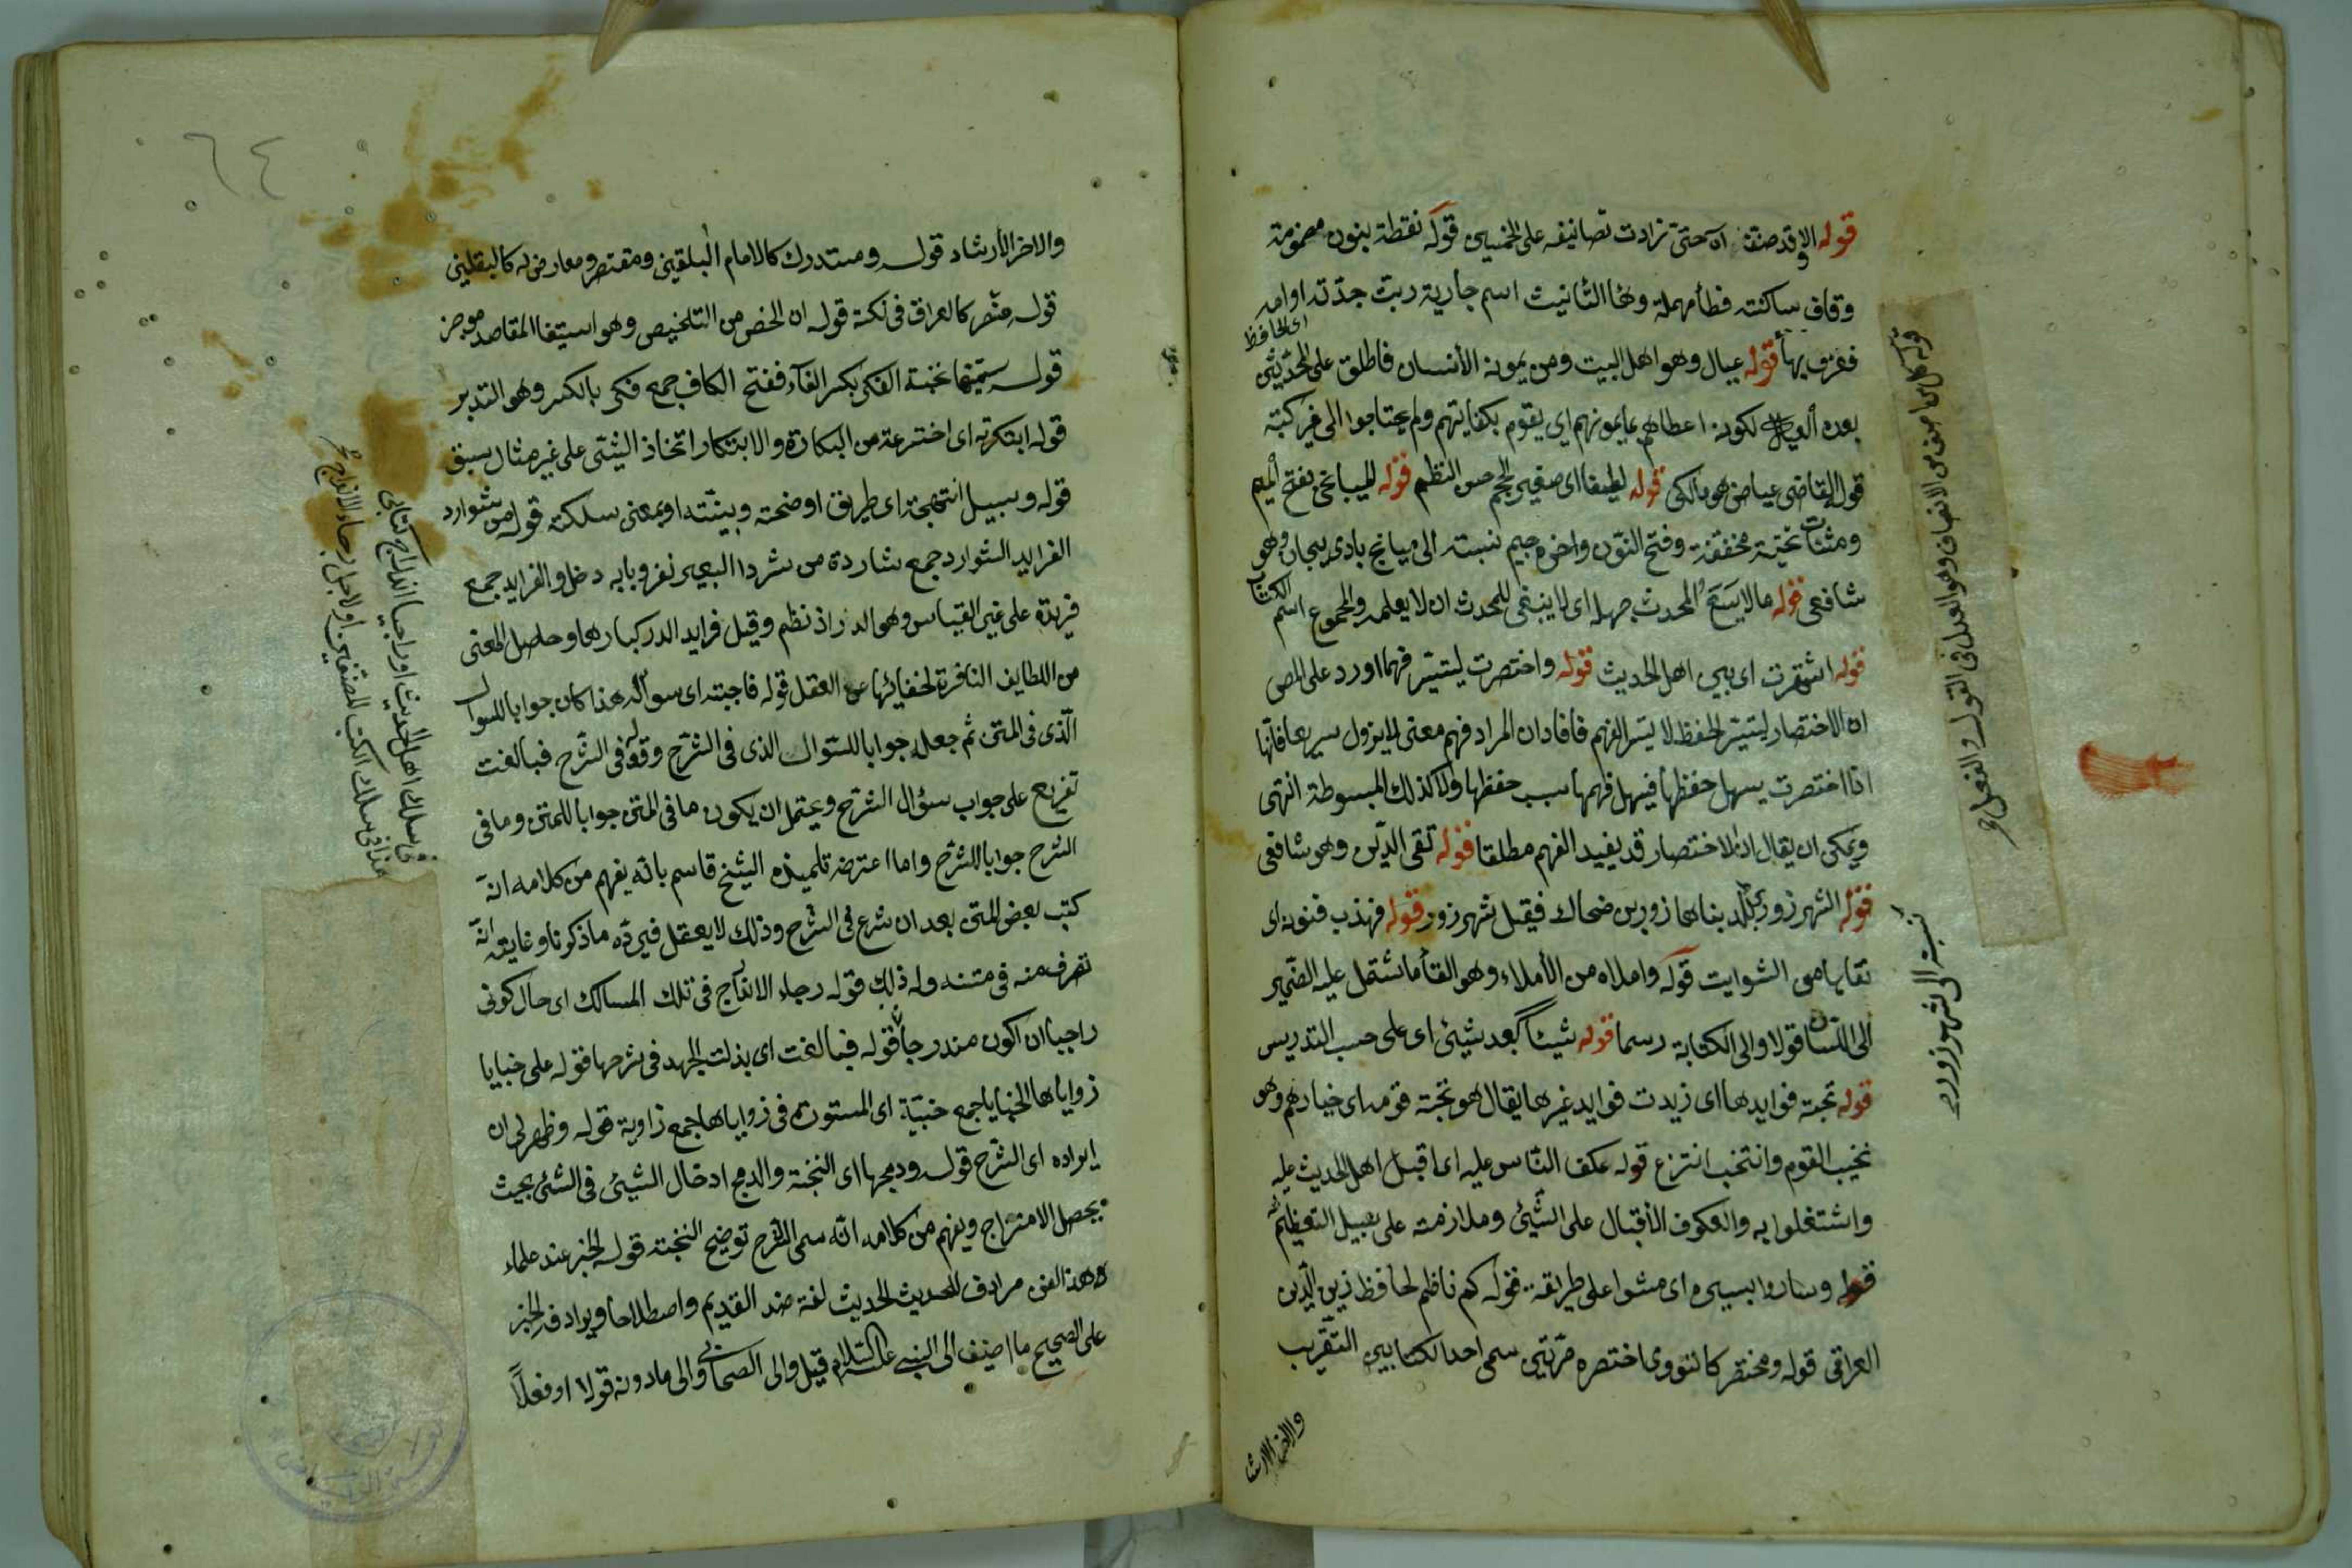 قوله الا وقد صنف اه حتى زادت تصانيفه على الخمسين قوله نقطة بنون مضمومة
وقاف ساكنته فطأ مهملة وها التانيث اسم جارية ربت جدته او امه
فعرف بها قوله عيال وهو اهل البيت ومن يمونه الأنسان فاطلق على المحدثين
اى الحافظ
بعده العيال لكونه اعطاهم ما يمونهم اى يقوم بكفايتهم ولم يحتاجوا الى غير كتبه
قوله القاضى عياض هو مالكى قوله لطيفا اى صغير الحجم حسن النظم قوله الميانجى بفتح الميم
ومثنات تحتية مخففة وفتح النون واخره جيم نسبته الى ميانج باذربيجان وهو
شافعى قوله ما لا يسع المحدث جهله اى لا ينبغى للمحدث ان لا يعلمه والمجموع اسم الكتاب
قوله اشتهرت اى بين اهل الحديث قوله واختصرت ليتيسر فهمها اورد على المص
ان الاختصار ليتيسر الحفظ لا يسر الفهم فافاد ان المراد فهم معنى لا يزول سريعا فانها
اذا اختصرت يسهل حفظها فيسهل فهمها سبب حفظها ولا كذلك المبسوطة انتهى
ويمكن ان يقال ان الاختصار قد يفيد الفهم مطلقا قوله تقى الدين وهو شافعى
قوله الشهرزورى بلد بناها زور بن ضحاك فقيل شهرزور قوله فهذب فنونه اى
نقاها من الشوايب قوله واملاه من الأملاء وهو القأ ما شتمل عليه الضمير
الى اللسان قولا والى الكتابة رسما قوله شيئا بعد شيئ اى على حسب التدريس
قوله نخبة فوايدها اى زيدت فوايد غيرها يقال هو نخبة قومه اى خيارهم وهو
نخيب القوم وانتخب انتزع قوله عكف الناس عليه اى اقبل اهل الحديث عليه
واشتغلوا به والعكوف الأقبال على الشيئ وملازمته على سبيل التعظيم له
قوله وساروا بسيره اى مشوا على طريقه قوله كم ناظم لحافظ زين الدين
العراقى قوله ومختصر كالنووى اختصره مرتين سمى احد الكتابين التقريب
والاخر الارشا
نسبته الى شهرزور
والاخر الأرشاد قوله ومستدرك كالامام البلقينى ومقتصر ومعارض له كالبقلينى
قوله منتصر كالعراقى فى نكته قوله ان الخص من التلخيص وهو استيفا المقاصد موجز
قوله سميتها نخبة الفكر بكسر الفاء ففتح الكاف جمع فكر بالكسر وهو التدبر
قوله ابتكرته اى اخترعته من البكارة والابتكار اتخاذ الشئى على غير مثال سبق
قوله وسبيل انتهجته اى طريق اوضحته وبينته او بمعنى سلكته قوله من شوارد
الفرايد الشوارد جمع شاردة من شرد البعير نفر وبابه دخل والفرايد جمع
فريدة على غير القياس وهو الدر اذ نظم وقيل فرايد الدر كبارها وحاصل المعنى
من اللطايف النافرة لخفائها عن العقل قوله فاجبته اى سواله هذا كان جوابا للسوال
الذى فى المتن ثم جعله جوابا للسوال الذى فى الشرح وقوله فى الشرح فبالغت
تفريع على جواب سؤال الشرح ويحتمل ان يكون ما فى المتن جوابا للمتن وما فى
الشرح جوابا للشرح واما اعترضه تلميذه الشيخ قاسم بانه يفهم من كلامه انه
كتب بعض المتن بعد ان شرع فى الشرح وذلك لا يعقل فيرده ما ذكرنا وغايته انه
تصرف منه فى متنه وله ذلك قوله رجاء الاندراج فى تلك المسالك اى حال كونى
راجيا ان اكون مندرجا قوله فبالغت اى بذلت الجهد فى شرحها قوله على خبايا
زواياها الخبايا جمع خبية اى المستورة فى زواياها جمع زاوية قوله وظهر لى ان
ايراده اى الشرح قوله ودمجها اى النخبة والدمج ادخال الشيئ فى الشئ بحيث
يحصل الامتزاج ويفهم من كلامه انه سمى الشرح توضيح النخبته قوله الخبر عند علماء
وهذا الفن مرادف للحديث الحديث لغة ضد القديم واصطلاحا ويرادفه الخبر
على الصحيح ما اضيف الى النبى عليه السلام قيل والى الصحابى والى ما دونه قولا او فعلا
فى سلك اهل الحديث او راجيا اندراج كتابى
هذا فى سلك الكتب للمصنفين او لاجل رجاء الاندراج
٦٤